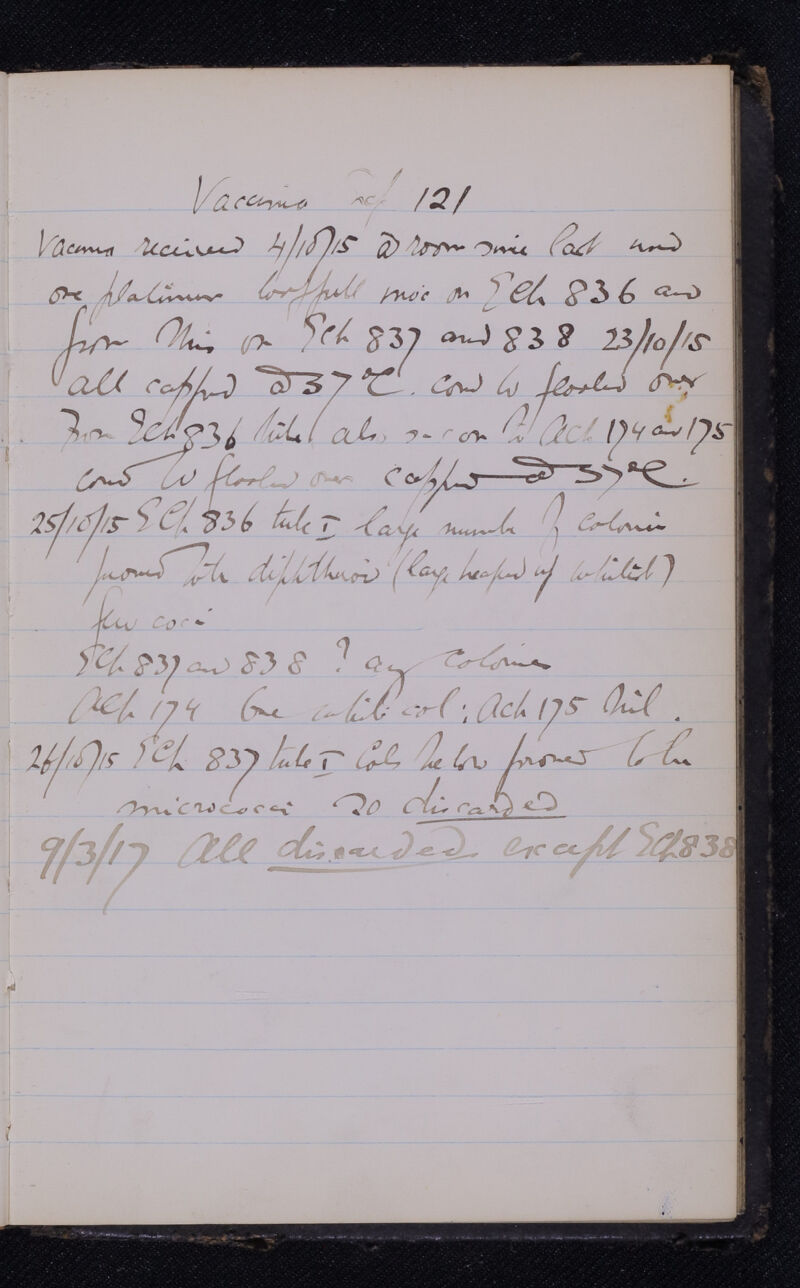 Vaccinia Ref 121
Vaccinia received 4/10/15 @ room since last used
one platinum loopfull inoc on Ech 836 and
from this on Ech 837 and 838 23/10/15
all capped @ 37°C. cond w flooded over
From Ech 836 tube also on to Ach 174 and 175
cond w flooded over capped @ 37°C.
25/10/15 Ech 836 tube I large number of colonies
proved to be diphtheroid (large heaped up whitish)
few cocci
Ech 837 and 838 ? any colonies
Ach 174 One white col: Ach 175 Nil.
26/10/15 Ech 837 tube I Cols below proved to be
micrococci so discarded
9/3/17 All discarded except Ech 838